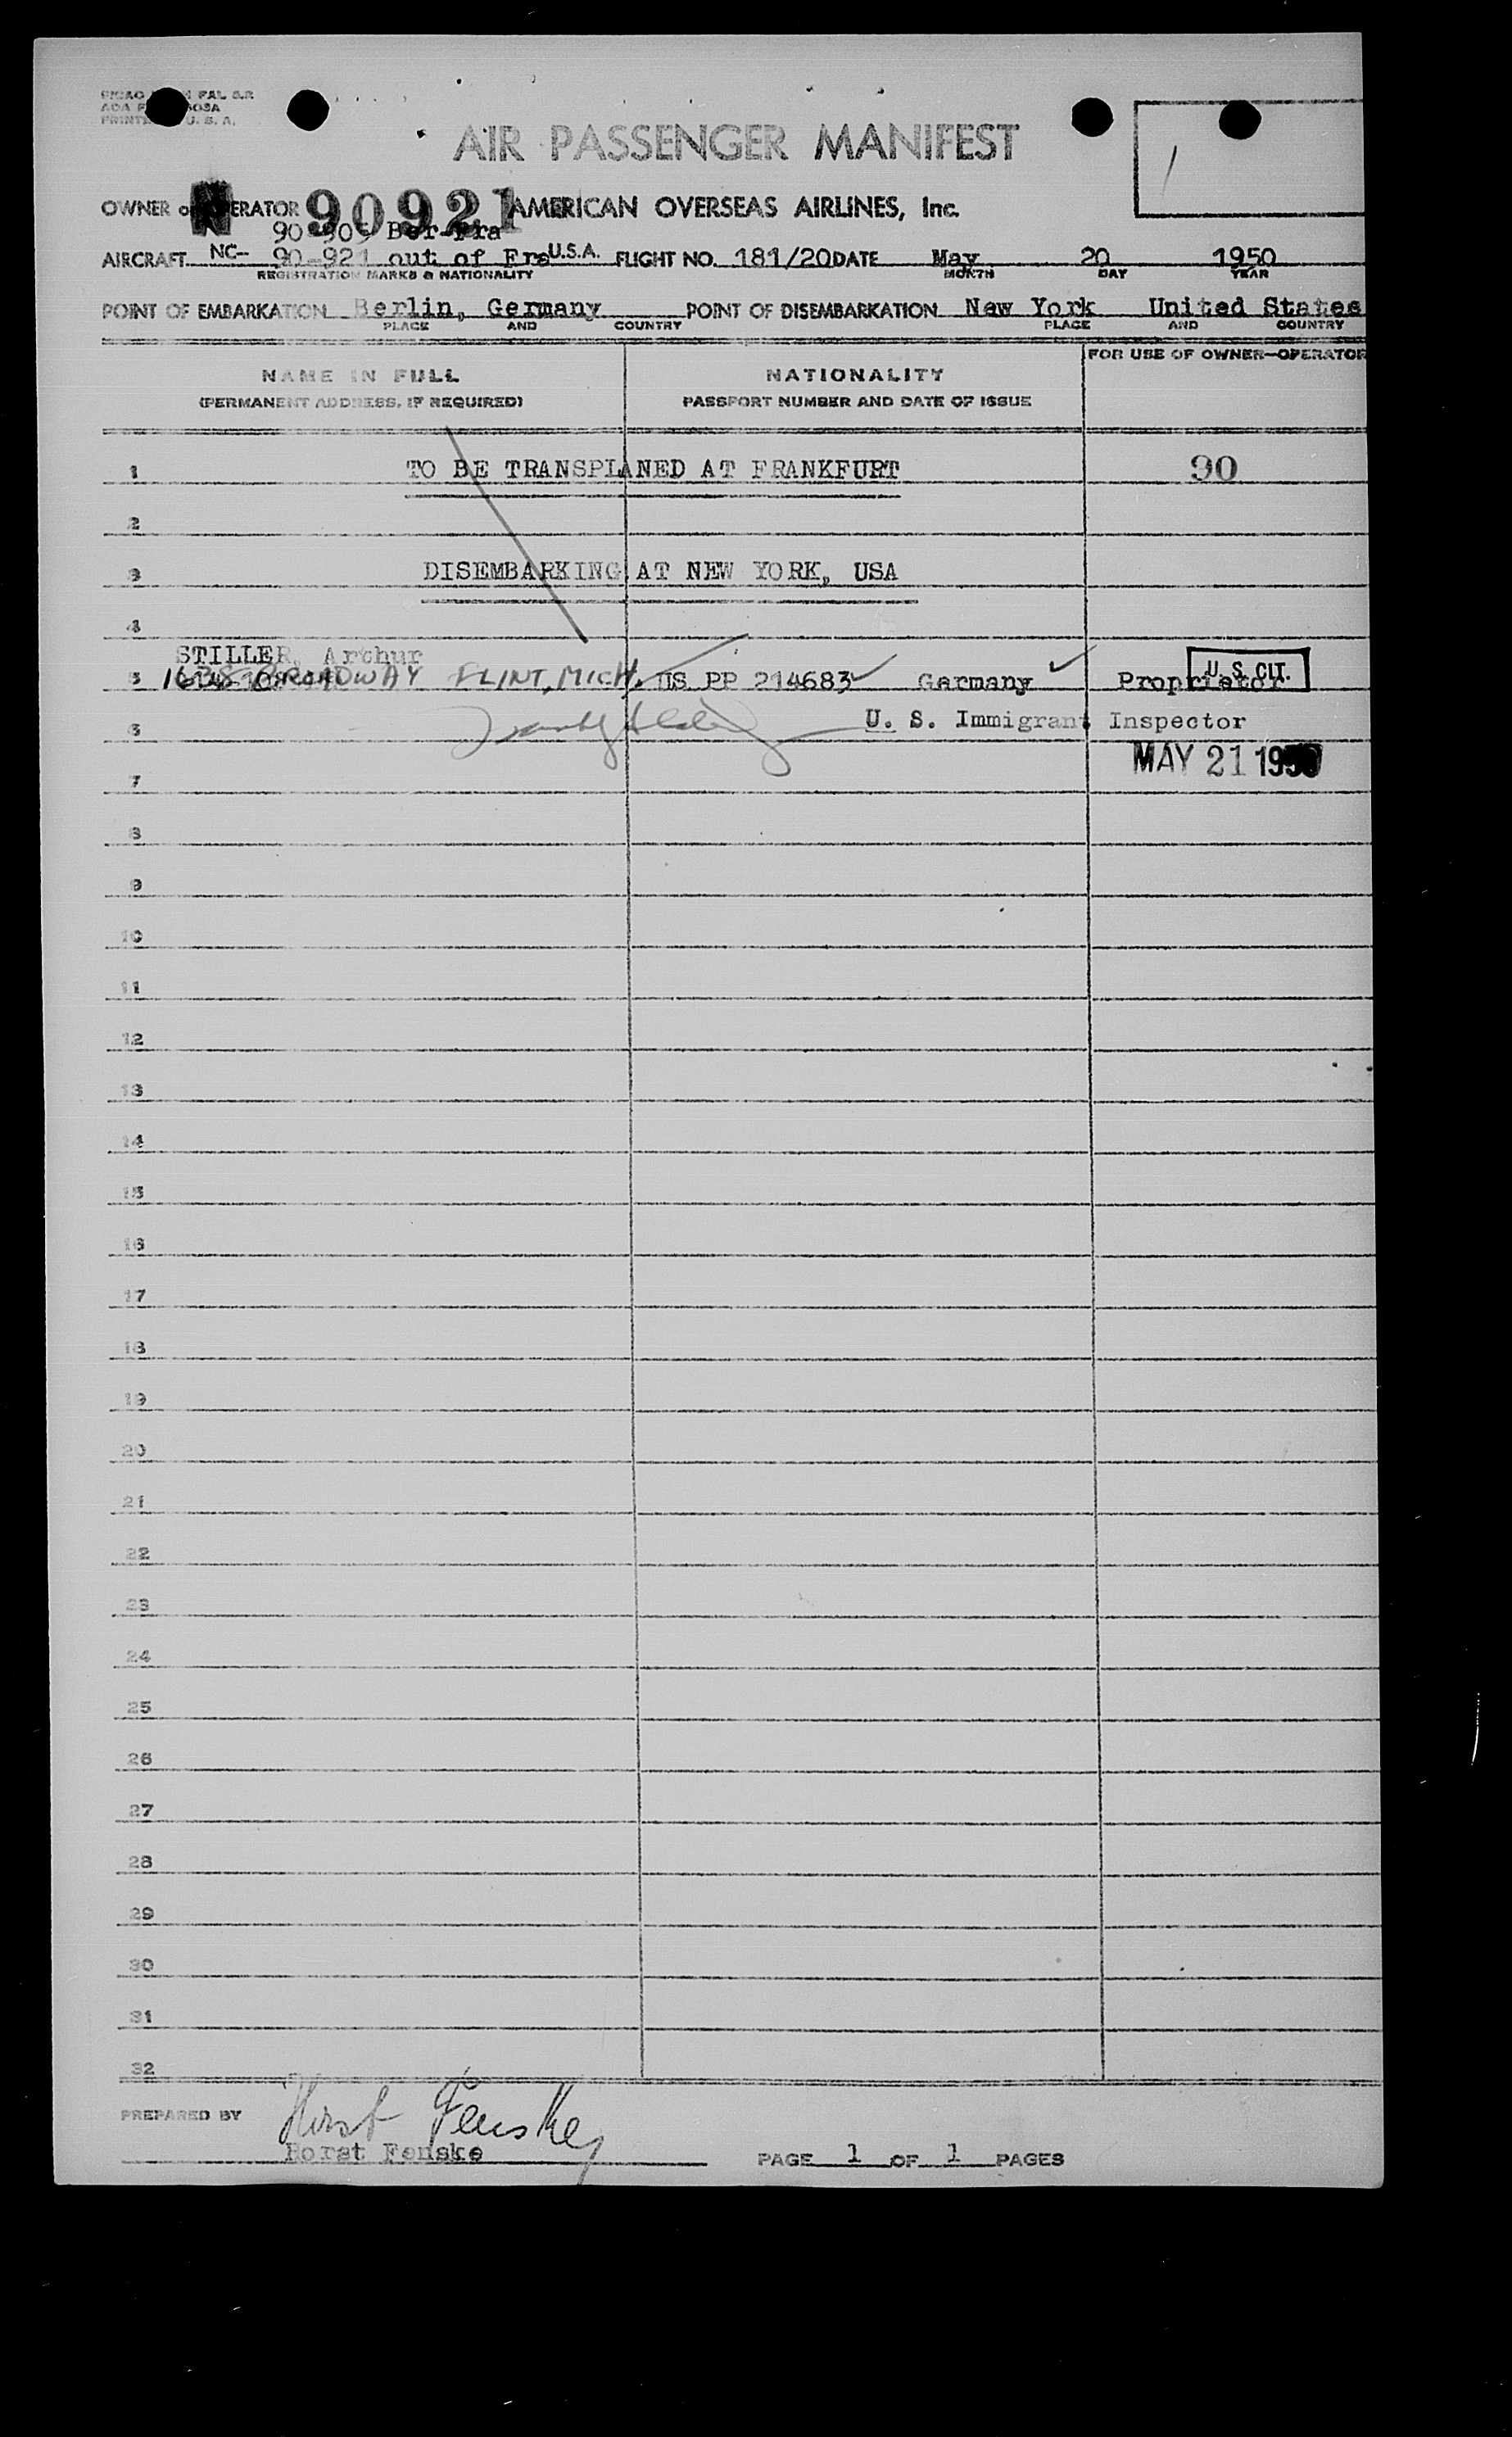 PRINTED U. S. A.
AIR PASSENGER MANIFEST
OWNER or OPERATOR AMERICAN OVERSEAS AIRLINES, Inc.
N 90921
90 905 Ber-Fra
AIRCRAFT NC- 90-921 out of Fra U.S.A. FLIGHT NO. 181/20 DATE May 20 1950
REGISTRATION MARKS & NATIONALITY MONTH DAY YEAR
POINT OF EMBARKATION Berlin, Germany POINT OF DISEMBARKATION New York United States
PLACE AND COUNTRY PLACE AND COUNTRY
NAME IN FULL NATIONALITY FOR USE OF OWNER—OPERATOR
(PERMANENT ADDRESS, IF REQUIRED) PASSPORT NUMBER AND DATE OF ISSUE
1 TO BE TRANSPLANED AT FRANKFURT 90
2
3 DISEMBARKING AT NEW YORK, USA
4
STILLER, Arthur
5 BROADWAY FLINT, MICH. US PP 214683 Germany Proprietor U.S. CIT.
6 U. S. Immigrant Inspector
7 MAY 21 1950
8
9
10
11
12
13
14
15
16
17
18
19
20
21
22
23
24
25
26
27
28
29
30
31
32
PREPARED BY Horst Fenske
Horst Fenske PAGE 1 OF 1 PAGES